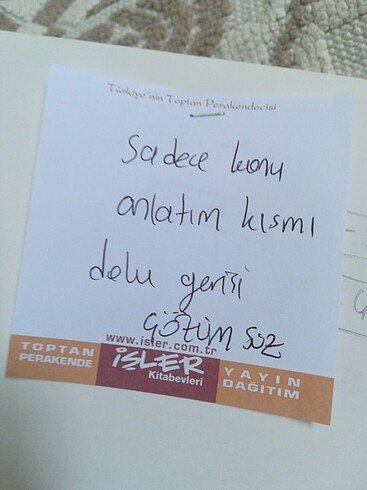 Türkiye'nin Toptan Perakendecisi
Sadece konu
anlatım kısmı
dolu gerisi
çözüm süz
www.isler.com.tr
TOPTAN
PERAKENDE
İŞLER
Kitabevleri
YAYIN
DAĞITIM